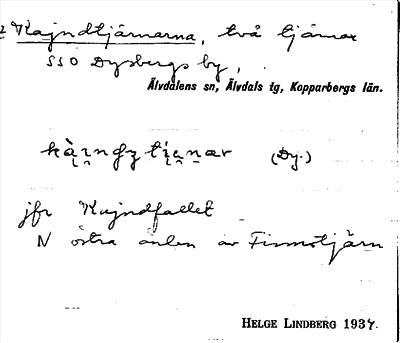 2 Kajndtjärnarna, två tjärnar
SSO Dysbergs by,
Älvdalens sn, Älvdals tg, Kopparbergs län.
(Dy.)
jfr Kajndfallet
N östra änden av Finnotjärn
HELGE LINDBERG 1937.